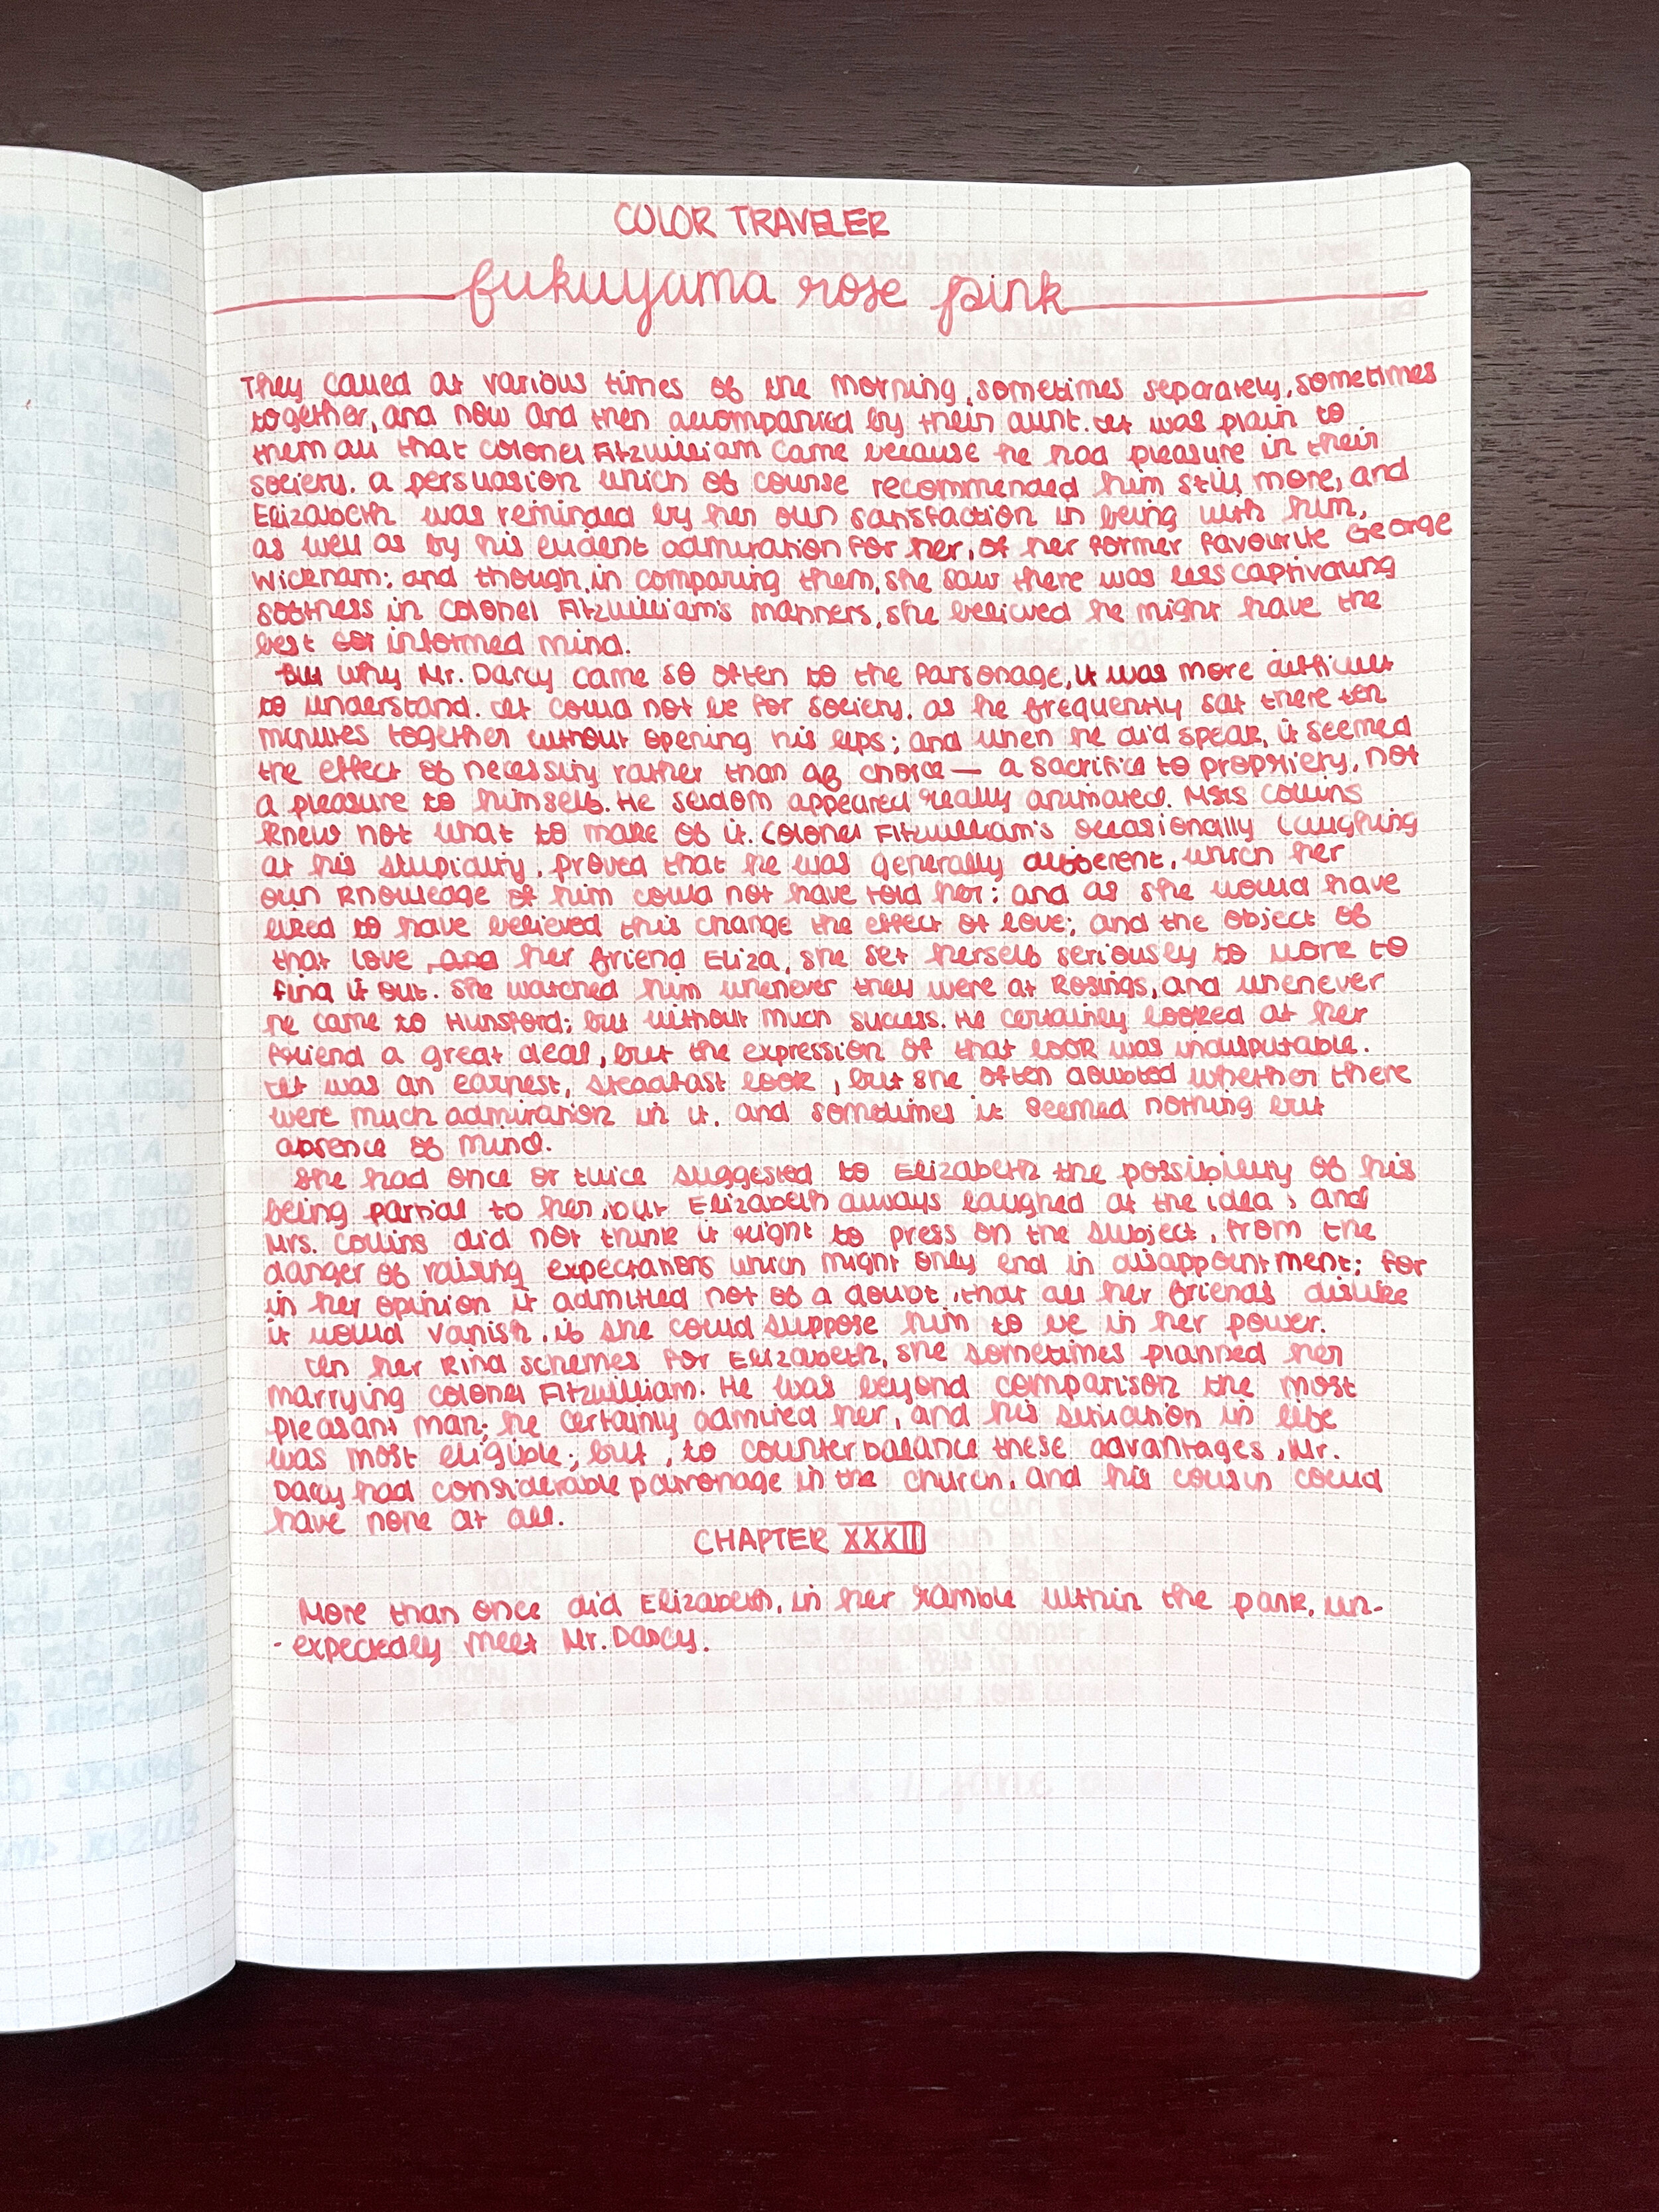 COLOR TRAVELER
fukuyama rose pink
They called at various times of the morning, sometimes separately, sometimes
together, and now and then accompanied by their aunt. It was plain to
them all that Colonel Fitzwilliam came because he had pleasure in their
society. a persuasion which of course recommended him still more, and
Elizabeth was reminded by her own satisfaction in being with him,
as well as by his evident admiration for her, of her former favourite George
Wickham; and though, in comparing them, she saw there was less captivating
softness in Colonel Fitzwilliam's manners, she believed he might have the
best informed mind.
But why Mr. Darcy came so often to the Parsonage, it was more difficult
to understand. It could not be for society. as he frequently sat there ten
minutes together without opening his lips; and when he did speak, it seemed
the effect of necessity rather than of choice — a sacrifice to propriety, not
a pleasure to himself. He seldom appeared really animated. Mrs Collins
knew not what to make of it. Colonel Fitzwilliam's occasionally laughing
at his stupidity, proved that he was generally different, which her
own knowledge of him could not have told her; and as she would have
liked to have believed this change the effect of love; and the object of
that love and her friend Eliza, she set herself seriously to work to
find it out. She watched him whenever they were at Rosings, and whenever
he came to Hunsford; but without much success. He certainly looked at her
friend a great deal, but the expression of that look was indisputable.
It was an earnest, steadfast look, but she often doubted whether there
were much admiration in it, and sometimes it seemed nothing but
absence of mind.
She had once or twice suggested to Elizabeth the possibility of his
being partial to her, but Elizabeth always laughed at the idea; and
Mrs. Collins did not think it right to press on the subject, from the
danger of raising expectations which might only end in disappointment; for
in her opinion it admitted not of a doubt, that all her friends dislike
it would vanish, if she could suppose him to be in her power.
In her kind schemes for Elizabeth, she sometimes planned her
marrying Colonel Fitzwilliam. He was beyond comparison the most
pleasant man; he certainly admired her, and his situation in life
was most eligible; but, to counterbalance these advantages, Mr.
Darcy had considerable patronage in the church, and his cousin could
have none at all.
CHAPTER XXXIII
More than once did Elizabeth, in her ramble within the park, un-
-expectedly meet Mr. Darcy.